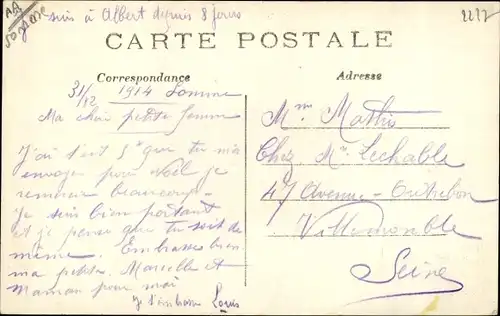 suis à Albert depuis 8 jours
2217
Somme
CARTE POSTALE
Correspondance
Adresse
31/12 1914 Somme
Ma cher petite femme
J'ai 5 que tu m'a
envoyer pour Noël je
remercie beaucoup
Je suis bien portant
et je pense que tu soit de
même. Embrasse bien
ma petite Marcelle et
maman pour moi
Je t'embrasse Louis
Mme Mathis
Chez Mr Lechable
47 Avenue
Villemomble
Seine